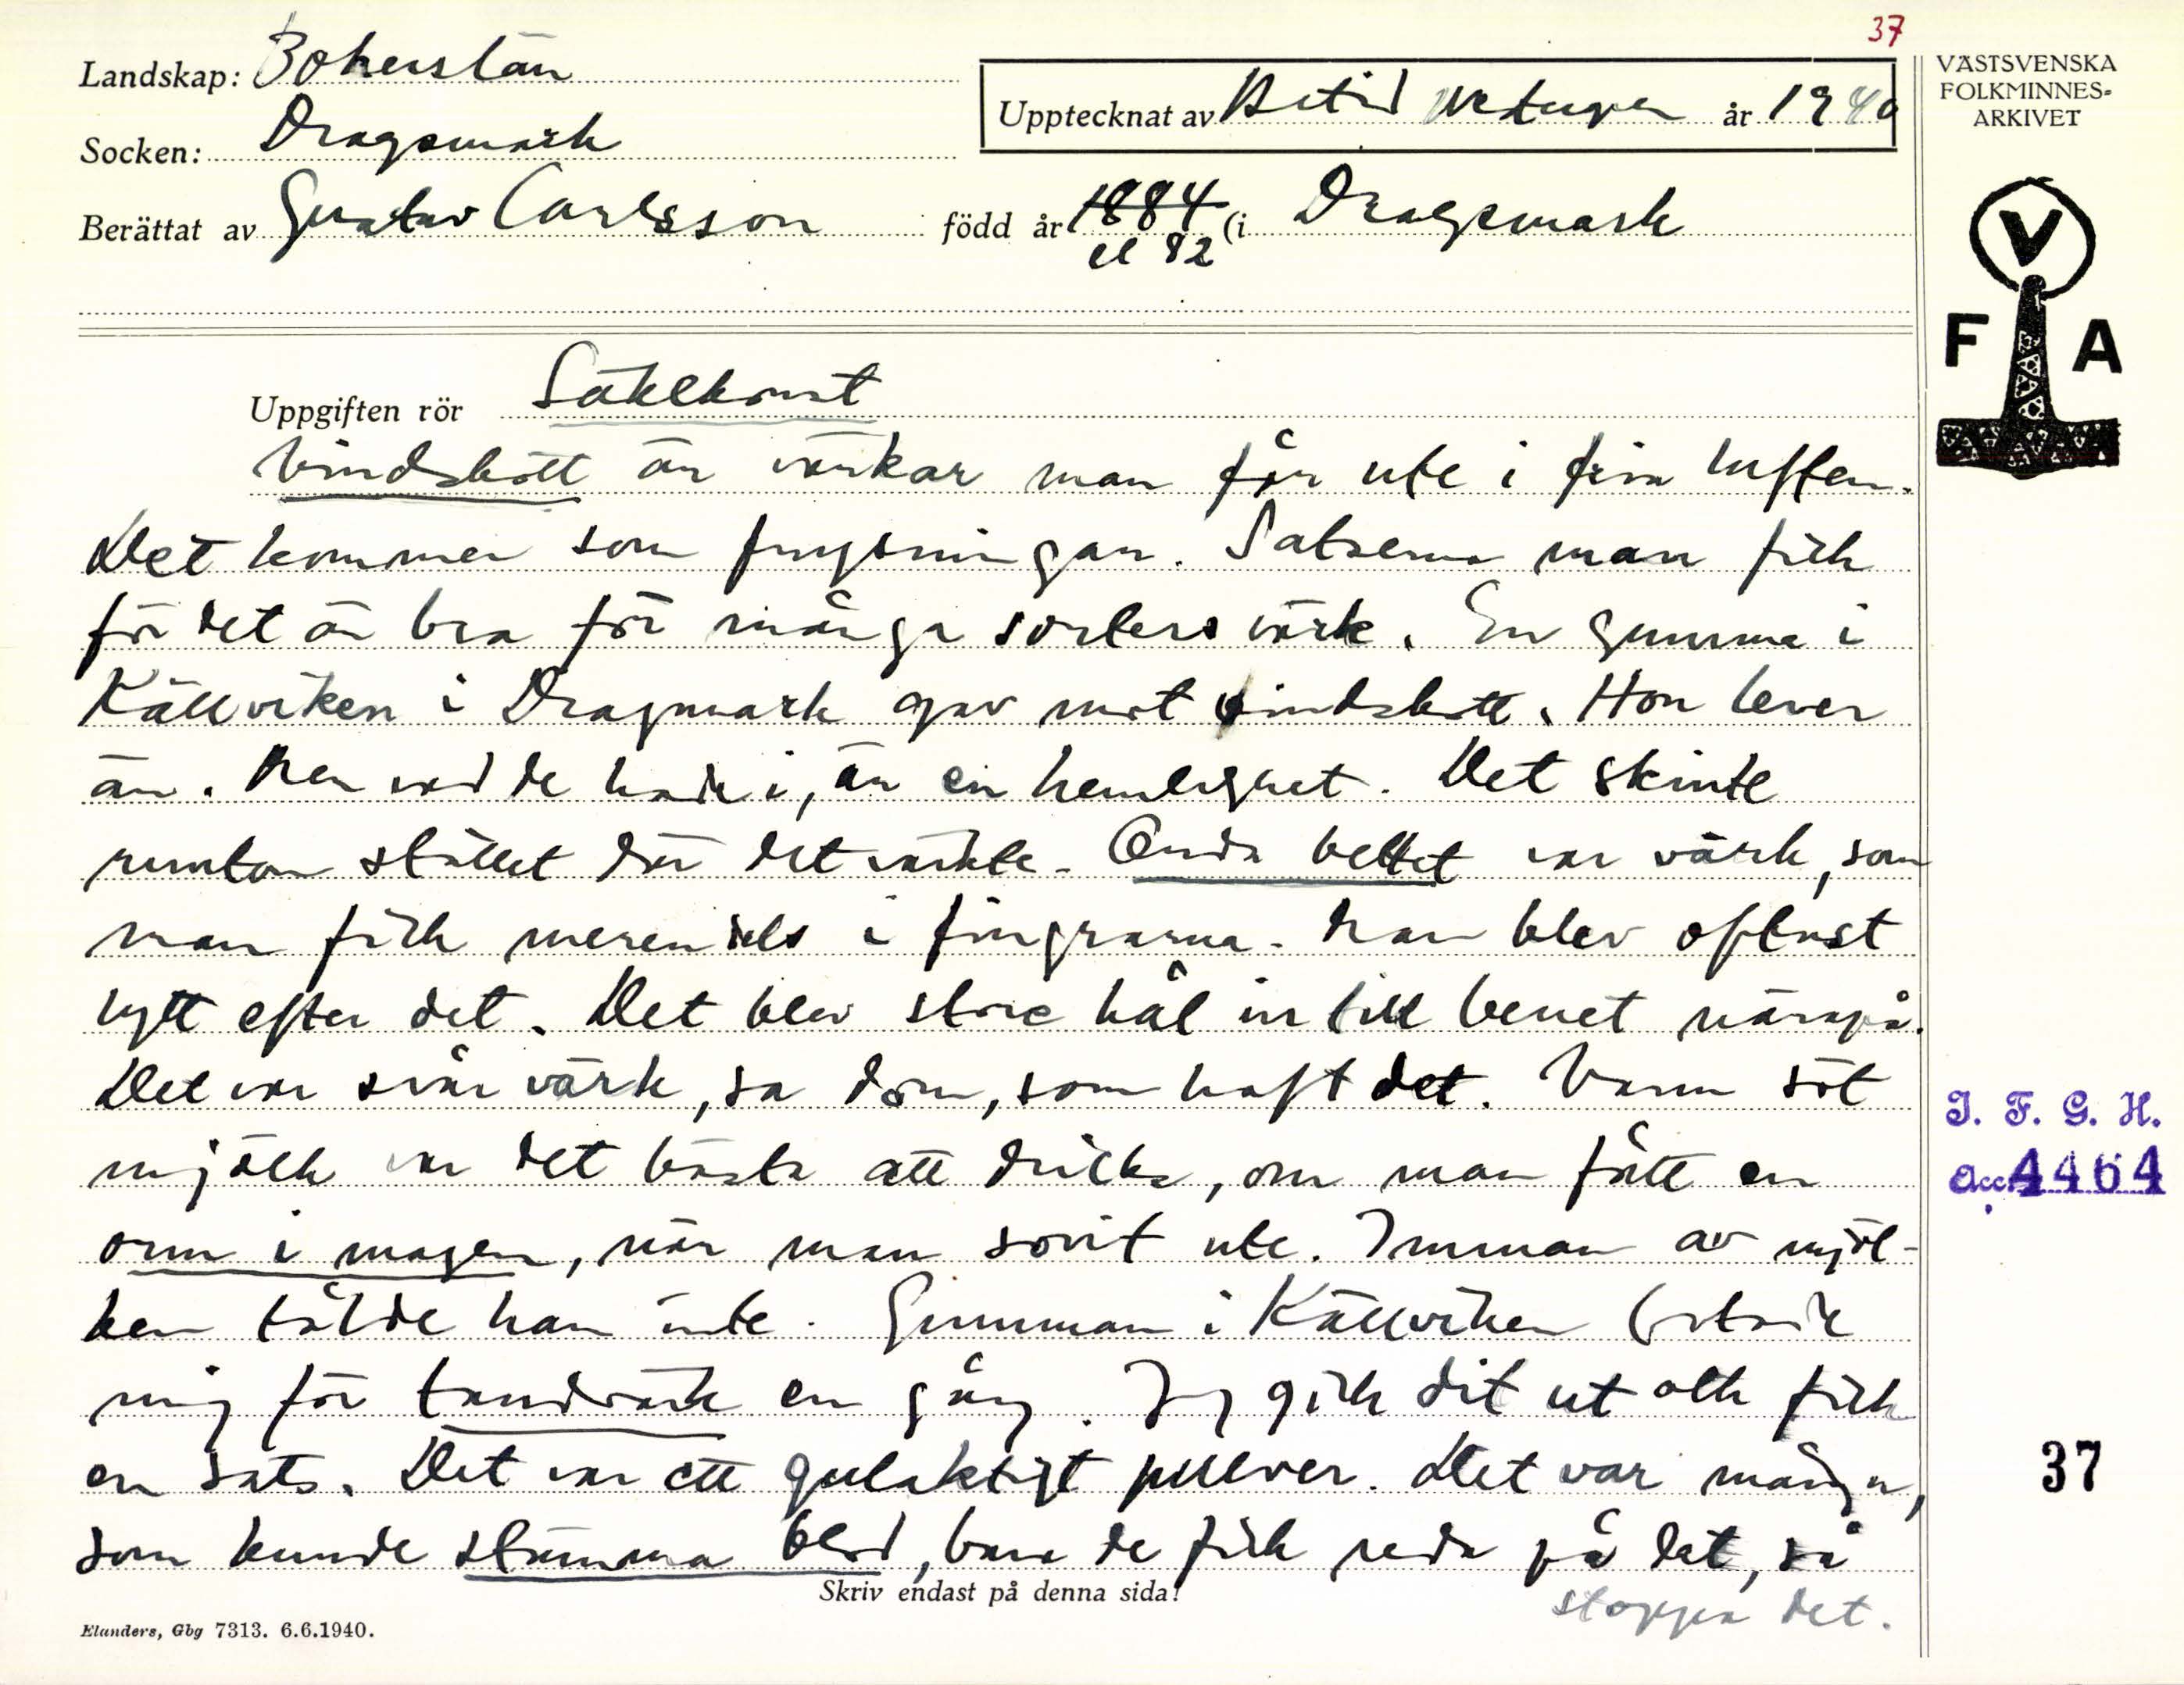 37
Landskap: Bohuslän
Upptecknat av år 1940
VÄSTSVENSKA
FOLKMINNES-
ARKIVET
Socken: Dragsmark
Berättat av Gustav Carlsson född år 1884 (i Dragsmark
el 82
V
F A
Uppgiften rör Läkekonst
Vindskott är värkar man får ute i fria luften.
Det kommer som frysningar. Satserna man fick
för det är bra för många sorters värk. En gumma i
Källviken i Dragsmark gav mot vindskott. Hon lever
än. Men vad de hade i, är en hemlighet. Det skinte
runtom stället där det värkte. Onda bettet var värk, som
man fick merendels i fingrarna. Man blev oftast
lytt efter det. Det blev stora hål in till benet närapå.
Det var svår värk, sa dom, som haft det. Varm söt
mjölk var det bästa att dricka, om man fått en
orm i magen, när man sovit ute. Imman av mjöl-
ken tålde han inte. Gumman i Källviken botade
mig för tandvärk en gång. Jag gick dit ut och fick
en sats. Det var ett gulaktigt pulver. Det var många,
som kunde stämma blod, bara de fick reda på det, så
stoppa det.
Skriv endast på denna sida!
Elanders, Gbg 7313. 6.6.1940.
I. F. G. H.
Acc. 4464
37